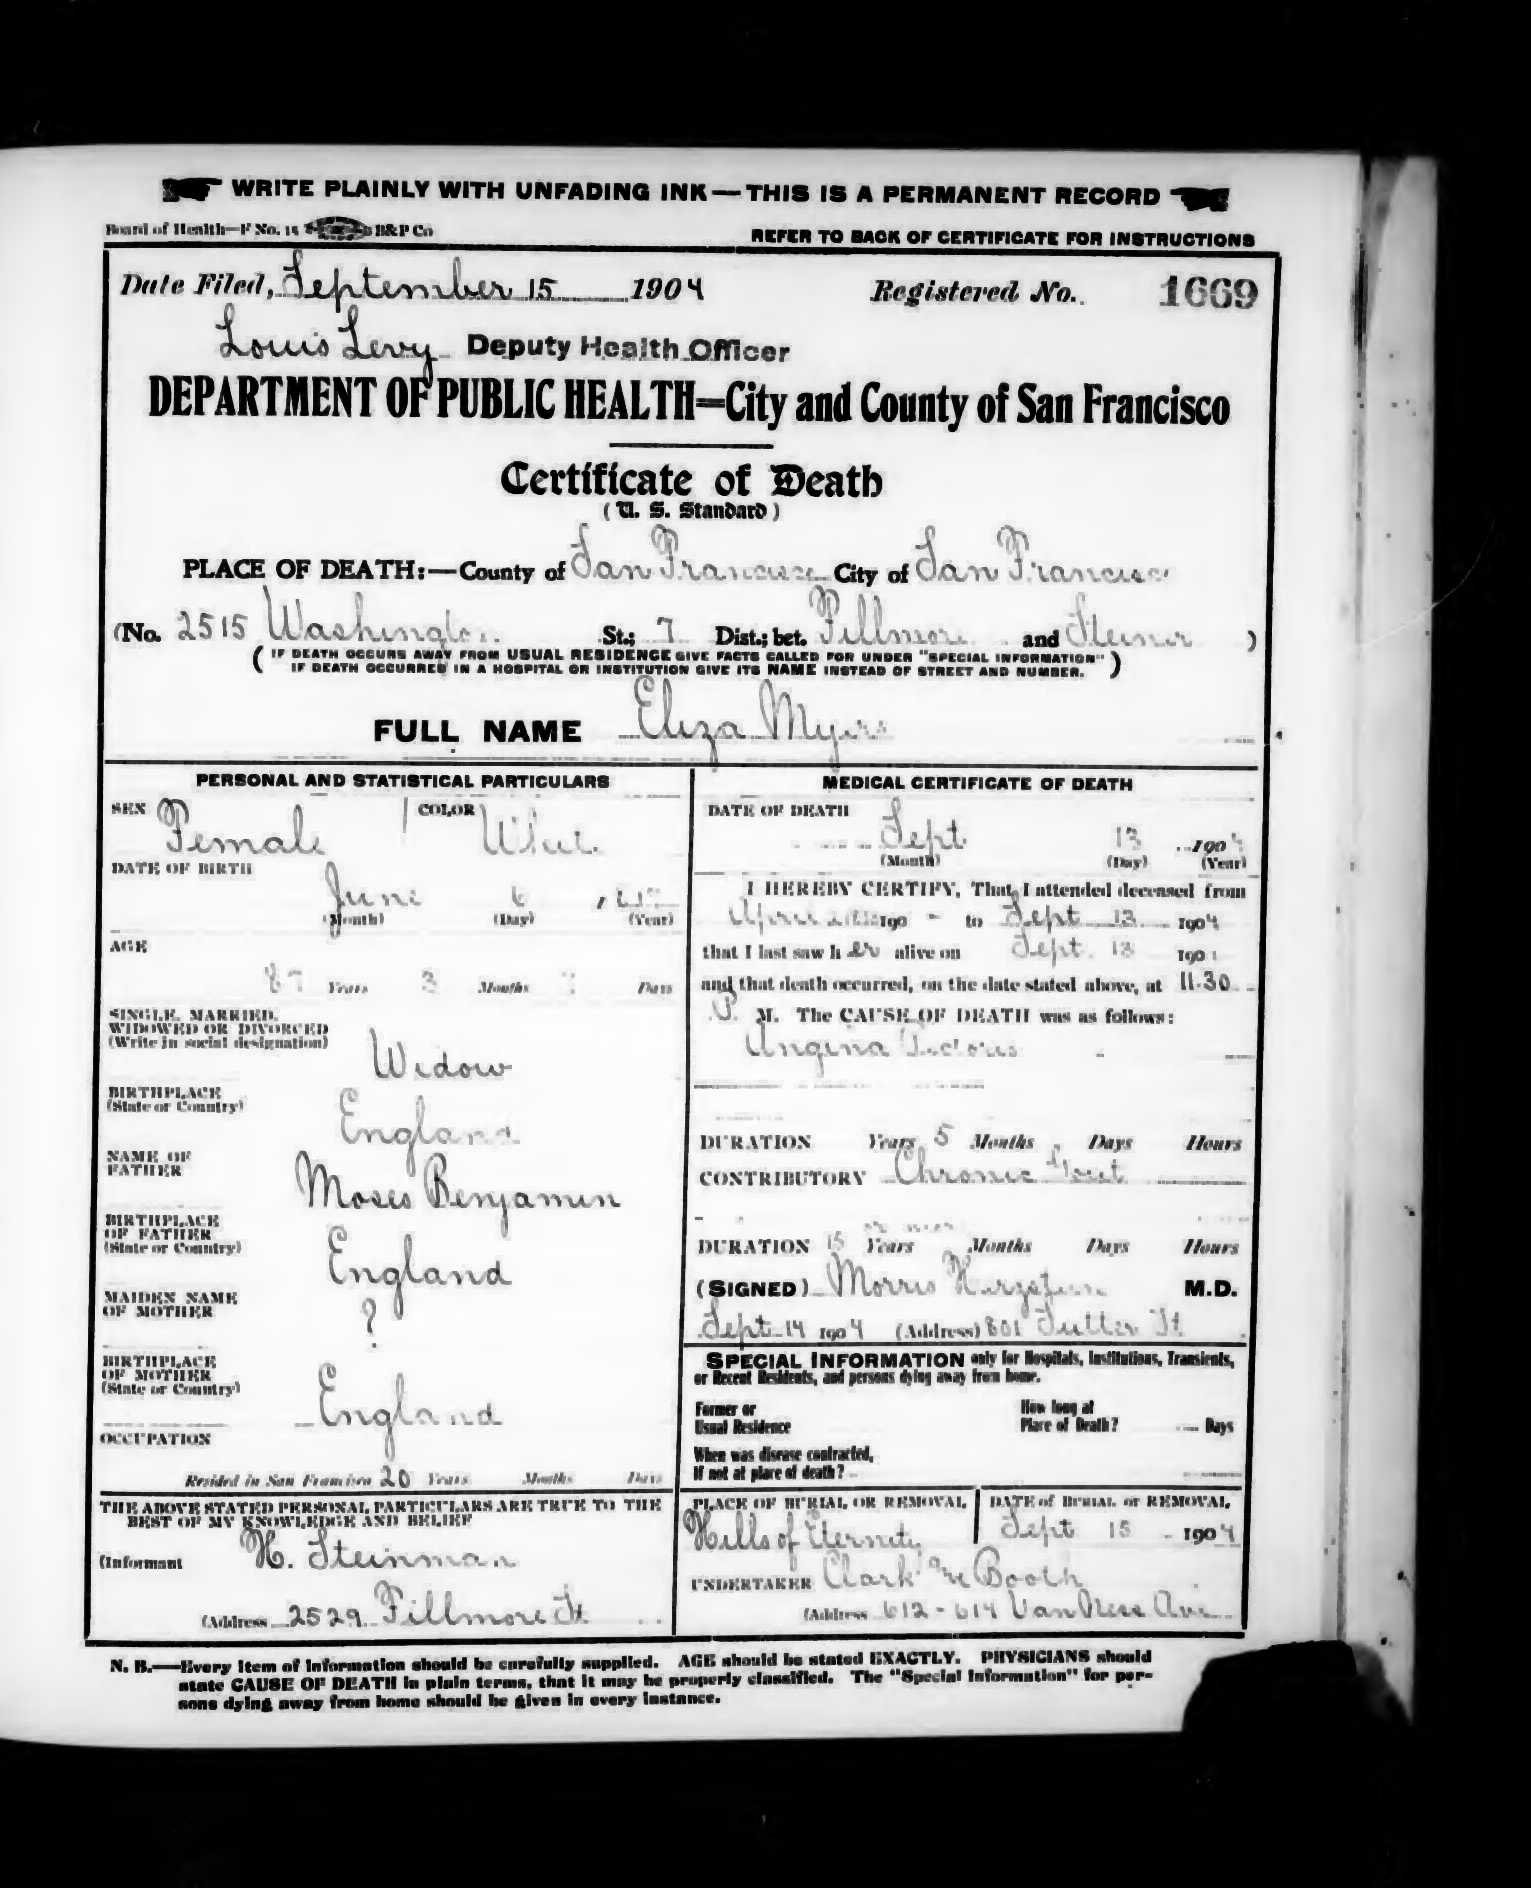 WRITE PLAINLY WITH UNFADING INK—THIS IS A PERMANENT RECORD
Board of Health—F No. 15 B&P Co
REFER TO BACK OF CERTIFICATE FOR INSTRUCTIONS
Date Filed, September 15 1904 Registered No. 1669
Louis Levy Deputy Health Officer
DEPARTMENT OF PUBLIC HEALTH=City and County of San Francisco
Certificate of Death
(U. S. Standard)
PLACE OF DEATH:—County of San Francisco City of San Francisco
(No. 2515 Washington St.; 7 Dist.; bet. Fillmore and Steiner )
( IF DEATH OCCURS AWAY FROM USUAL RESIDENCE GIVE FACTS CALLED FOR UNDER "SPECIAL INFORMATION"
IF DEATH OCCURRED IN A HOSPITAL OR INSTITUTION GIVE ITS NAME INSTEAD OF STREET AND NUMBER. )
FULL NAME Eliza Myers
PERSONAL AND STATISTICAL PARTICULARS
SEX Female COLOR White
DATE OF BIRTH
June 6
(Month) (Day) (Year)
AGE
87 Years 3 Months Days
SINGLE, MARRIED,
WIDOWED OR DIVORCED
(Write in social designation)
Widow
BIRTHPLACE
(State or Country)
England
NAME OF
FATHER
Moses Benjamin
BIRTHPLACE
OF FATHER
(State or Country)
England
MAIDEN NAME
OF MOTHER
?
BIRTHPLACE
OF MOTHER
(State or Country)
England
OCCUPATION
Resided in San Francisco 20 Years Months Days
THE ABOVE STATED PERSONAL PARTICULARS ARE TRUE TO THE
BEST OF MY KNOWLEDGE AND BELIEF
(Informant H. Steinman
(Address 2529 Fillmore St
MEDICAL CERTIFICATE OF DEATH
DATE OF DEATH
Sept 13 1904
(Month) (Day) (Year)
I HEREBY CERTIFY, That I attended deceased from
April 190 - to Sept 13 1904
that I last saw her alive on Sept. 13 190
and that death occurred, on the date stated above, at 11.30
P. M. The CAUSE OF DEATH was as follows:
Angina Pectoris
DURATION Years 5 Months Days Hours
CONTRIBUTORY Chronic Gout
or more
DURATION 15 Years Months Days Hours
(SIGNED) Morris Herzstein M.D.
Sept 14 1904 (Address) 801 Sutter St
SPECIAL INFORMATION only for Hospitals, Institutions, Transients,
or Recent Residents, and persons dying away from home.
Former or
Usual Residence
How long at
Place of Death? Days
When was disease contracted,
If not at place of death?
PLACE OF BURIAL OR REMOVAL
Hills of Eternity
DATE of BURIAL or REMOVAL
Sept 15 1904
UNDERTAKER Clark & Booth
(Address 612-614 Van Ness Ave
N. B.—Every item of information should be carefully supplied. AGE should be stated EXACTLY. PHYSICIANS should
state CAUSE OF DEATH in plain terms, that it may be properly classified. The "Special Information" for per-
sons dying away from home should be given in every instance.